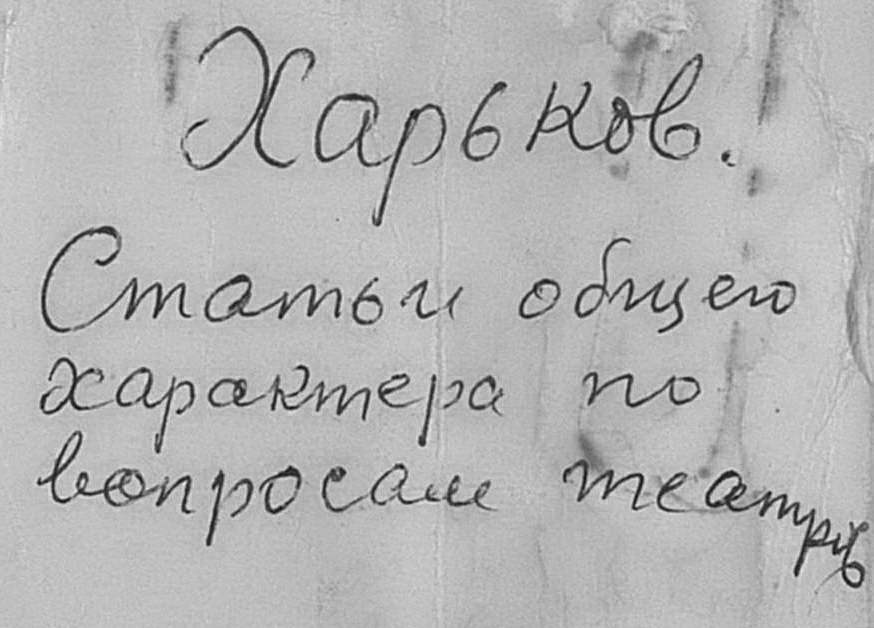 Харьков.
Статьи общего
характера по
вопросам